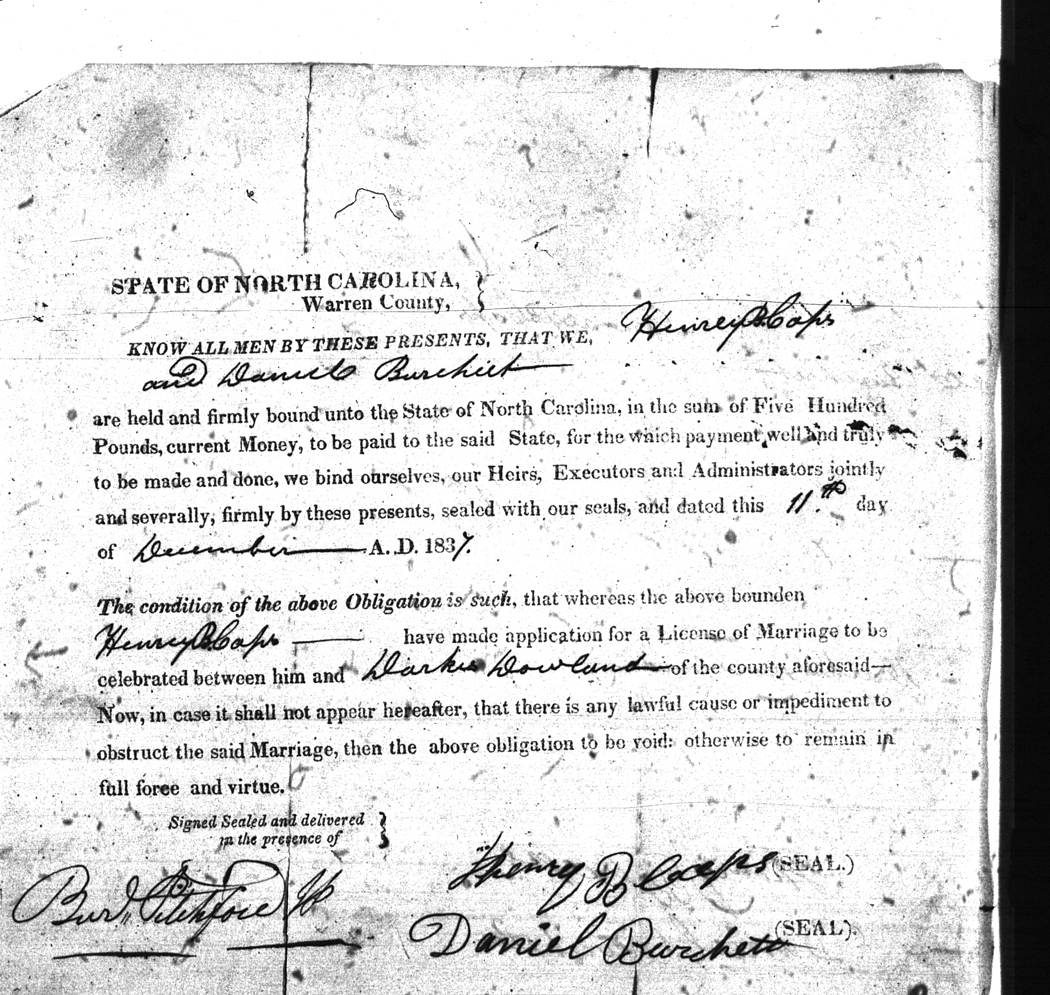 STATE OF NORTH CAROLINA,
Warren County,
KNOW ALL MEN BY THESE PRESENTS, THAT WE, Henrey B. Caps
and Daniel Burchett
are held and firmly bound unto the State of North Carolina, in the sum of Five Hundred
Pounds, current Money, to be paid to the said State, for the which payment well and truly
to be made and done, we bind ourselves, our Heirs, Executors and Administrators jointly
and severally, firmly by these presents, sealed with our seals, and dated this 11.th day
of December A. D. 1837.
The condition of the above Obligation is such, that whereas the above bounden
Henrey B Caps have made application for a License of Marriage to be
celebrated between him and Darkis Dowland of the county aforesaid—
Now, in case it shall not appear hereafter, that there is any lawful cause or impediment to
obstruct the said Marriage, then the above obligation to be void: otherwise to remain in
full force and virtue.
Signed Sealed and delivered
in the presence of
Henry B Caps (SEAL.)
Daniel Burchett (SEAL).